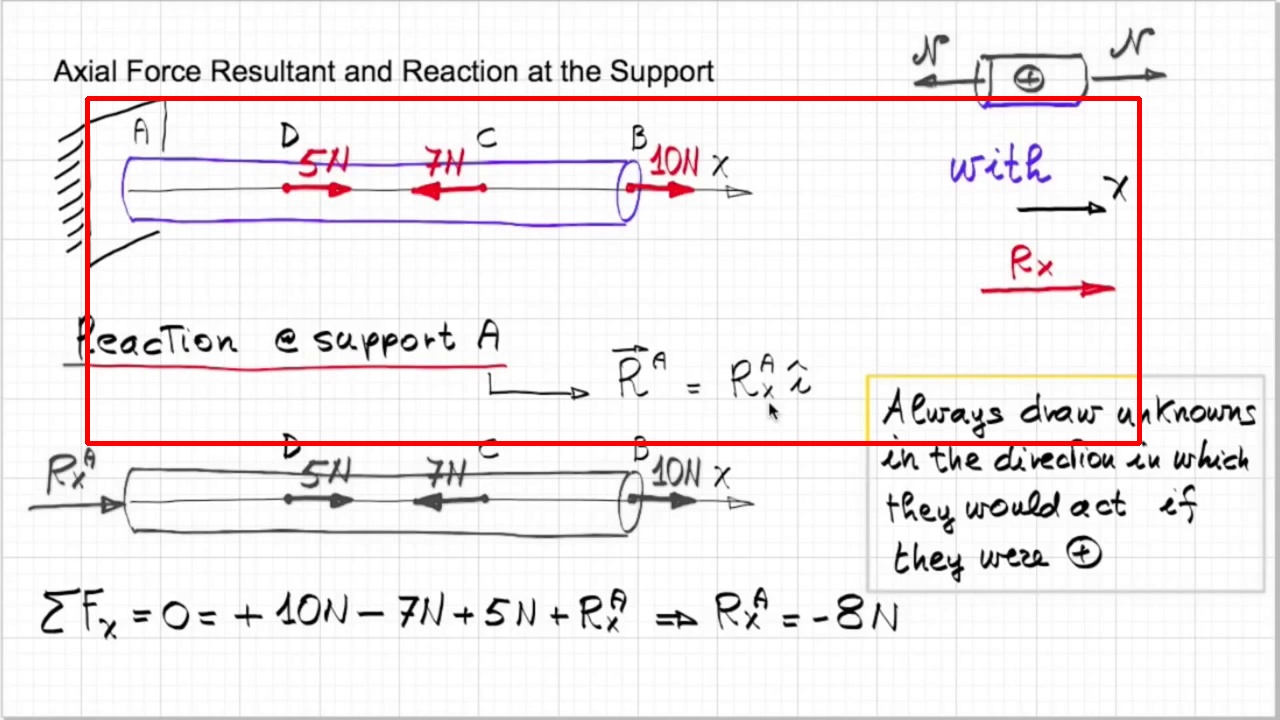 Axial Force Resultant and Reaction at the Support
N + N
A D 5N 7N C B 10N x
with
x
Rx
Reaction @ support A
R^A = Rx^A î
Always draw unknowns
in the direction in which
they would act if
they were +
Rx^A D 5N 7N C B 10N x
ΣFx = 0 = + 10N - 7N + 5N + Rx^A ⇒ Rx^A = -8N